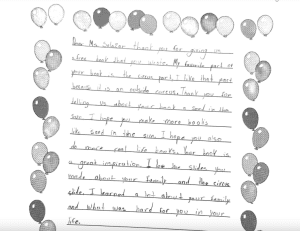 Dear Ms. Solator thank you for giving us
a free book that you wrote. My favorite part of
your book is the cirus part. I like that part
because it is an outside circus. Thank you for
telling us about your book a seed in the
sun. I hope you make more books
like seed in the sun. I hope you also
do more real life books. Your book is
a great inspiration. I love the slides you
made about your family and the circus
slide. I learned a lot about your family
and what was hard for you in your
life.